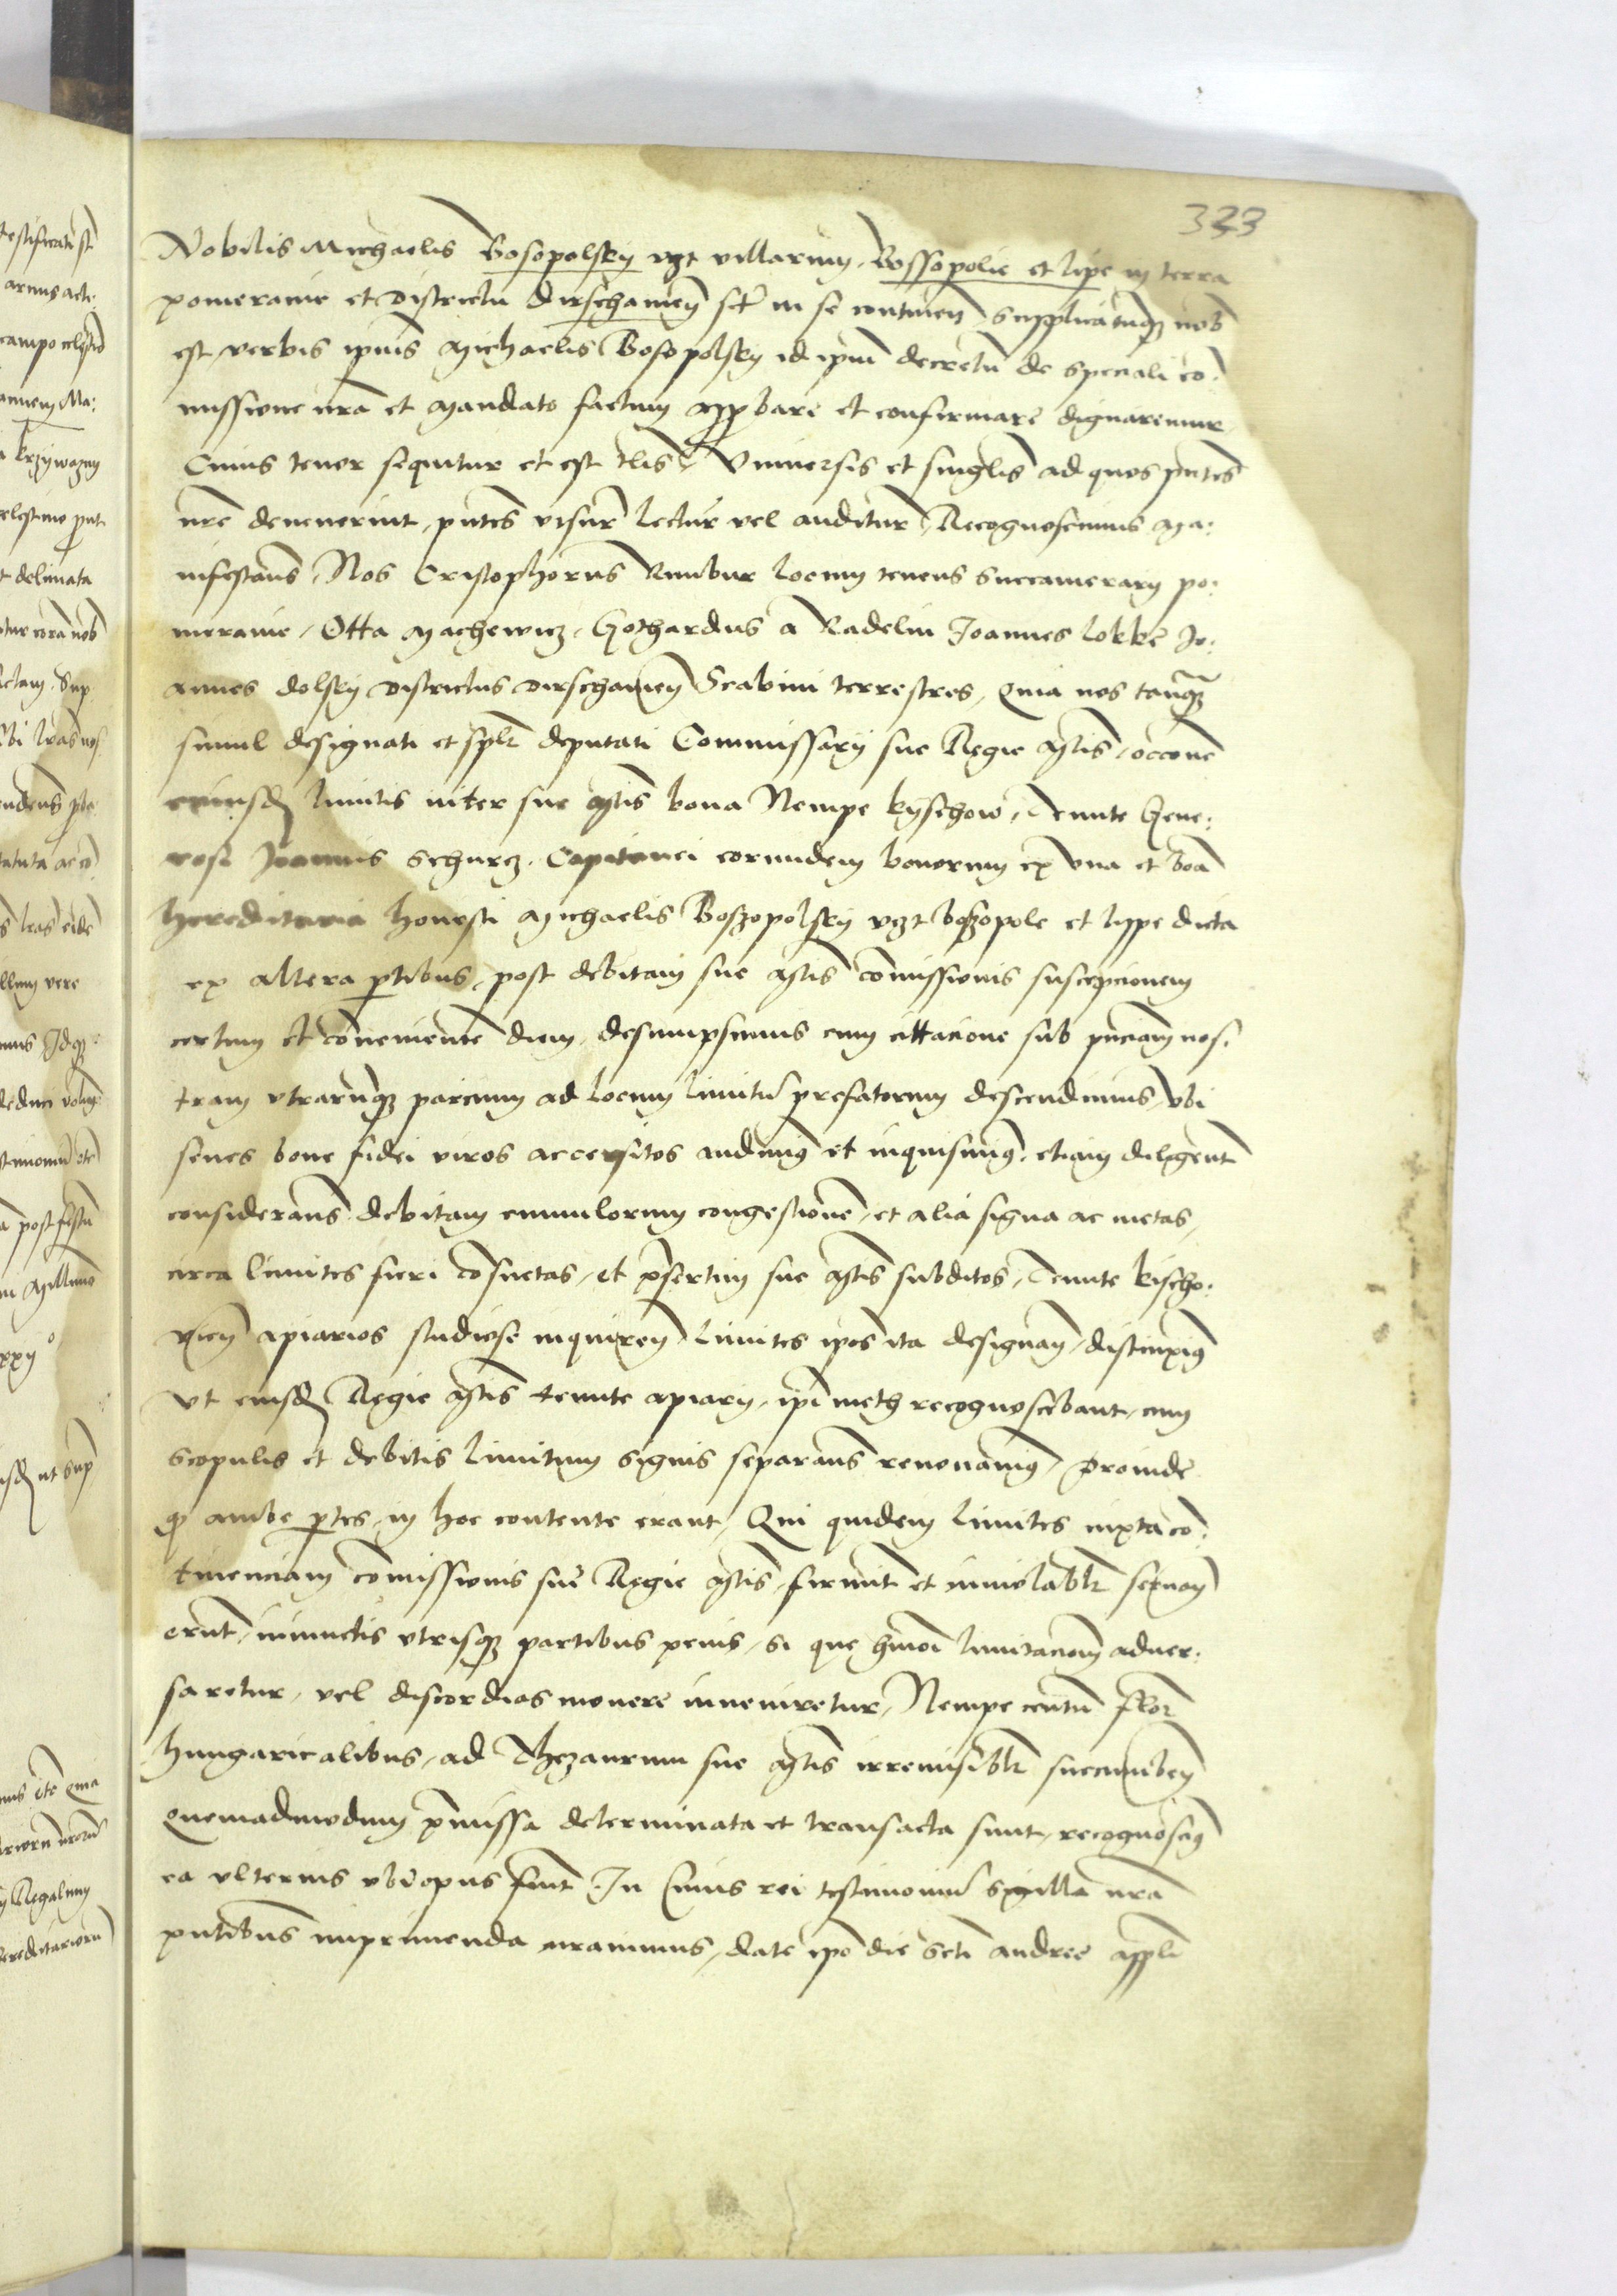 333
Nobilis Michaelis Bosopolsky vzt villarum, Bossopolie et lipe in terra
pomeranie et districtu dirschamen̄ sit̄ in se continen̄ supplicatumq̄ȝ nob̄
est verbis ipiūs Michaelis Bosopolsky id ipm̄ decretū de speciali cō:
missione nr̄a et Mandato factum approbare et confirmare dignaremur
Cuius tenor sequitur et est tlīs Vniuersis et singlīs ad quos pn̄tes
nr̄e deuenerint, pn̄tes visur̄ lectur̄ vel auditur̄, Recognoscimus Ma:
nifestan̄s, Nos Cristophorus Rmbur locum tenens Succamerarij po:
meranie, Otta Machewicz, Gothardus a Radelin Joannes lokke Jo:
annes dolsky districtus dirschamen̄ Scabini terrestres, Quia nos tanq̄ȝ
simul designati et splr̄ deputati Commissarij sue Regie Mtīs, occone
eiusd̄ limitis inter sue Mtīs bona Nempe kyschow, Tenute Gene:
rosi Joannis Schurcz, Capitanei eorundem bonorum ex vna et bōa
hereditaria honesti Michaelis Boszopolsky vzt boszopole et lippe dicta
ex altera ꝑtibus, post debitam sue Mtīs cōmissionis suscepcionem
certum et cōuenientē diem, desumpsimus cum cittacione sub pn̄ciam nos:
tram vtrarūq̄ȝ parcium ad locum limitū prefatorum descendimus, vbi
senes bone fidei viros accersitos audiuimꝰ et inquisiuimꝰ, etiam diligent̄
consideran̄s debitam cumulorum congestionē, et alia signa ac metas,
circa limites fieri cōsuetas, et p̄sertim sue Mtīs subditos, Tenute kischo:
vien̄ apiarios studiose inquiren̄ limites ipōs ita designan̄, distinximꝰ
vt eiusd̄ Regie Mtīs tenute apiarij, ipī meth recognoscebant, cum
scopulis et debitis limitum signis separan̄s renouauimꝰ, Proinde
ꝙ ambe ꝑtes, in hoc contente erant, Qui quidem limites iuxta cō:
tinenciam cōmissionis sue Regie Mtīs firmit̄ et inuiolablr̄ seruan̄
erūt, iniunctis vtrisq̄ȝ partibus penis, si que hm̄oi limitacioni aduer:
saretur, vel discordias mouere inueniretur, Nempe centū flor̄
hungaricalibus, ad Thezaurum sue Mtīs irremisiblr̄ succumben̄
Quemadmodum p̄missa determinata et transacta sunt, recognoscimꝰ
ea vlterius vbi opus fuit̄ In Cuius rei testimoniū sigilla nr̄a
pn̄tibus imprimenda curauimus, date ipō die scti andree appli